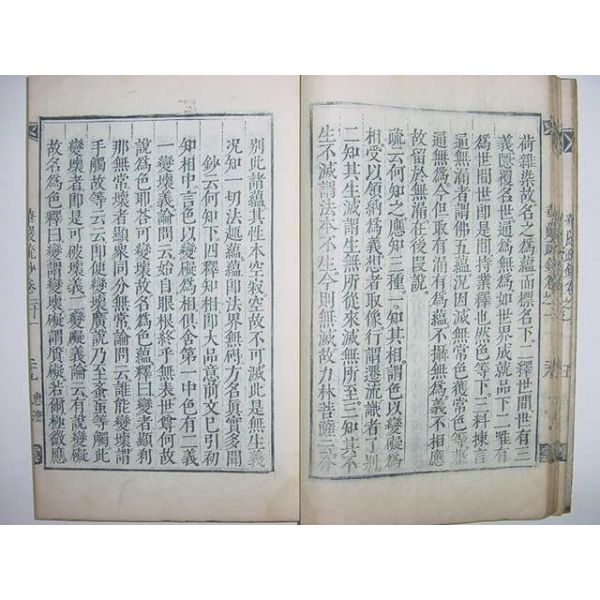 荷雜染故名之爲蘊而標名下二釋世間世有三
義隱覆名世通爲無爲如世界成就品下二唯有
爲世間世即時持業釋也然色等下二料揀言
通無漏者謂佛五蘊況因滅無常色獲常色等蘊
通無爲今但取有漏有爲蘊不攝無爲義不相應
故留於無漏在後段說
疏云何知之應知三種一知其相謂色以變礙爲
相受以領納爲義想者取像行謂遷流識者了別
二知其生滅謂生無所從來滅無所至三知其不
生不滅謂法本不生今則無滅故力林菩薩云分
別此諸蘊其性本空寂空故不可滅此是無生義
況知一切法趣蘊蘊即法界無礙方名眞實多聞
鈔云何知下四釋知相即大品意前文已引初
知相中言色以變礙爲相俱舍第一中色有二義
一變壞義論問云始自眼根終乎無表世尊何故
說爲色耶荅可變壞故名爲色蘊釋曰變者顯刹
那無常壞者顯衆同分無常論問云誰能變壞謂
手觸故等云云即便變壞廣說乃至蚤蝨等觸此
變壞者即是可破壞義二變礙義論云有說變礙
故名爲色釋曰變謂變壞礙謂質礙若爾極微應
華嚴疏鈔卷二十一
二九